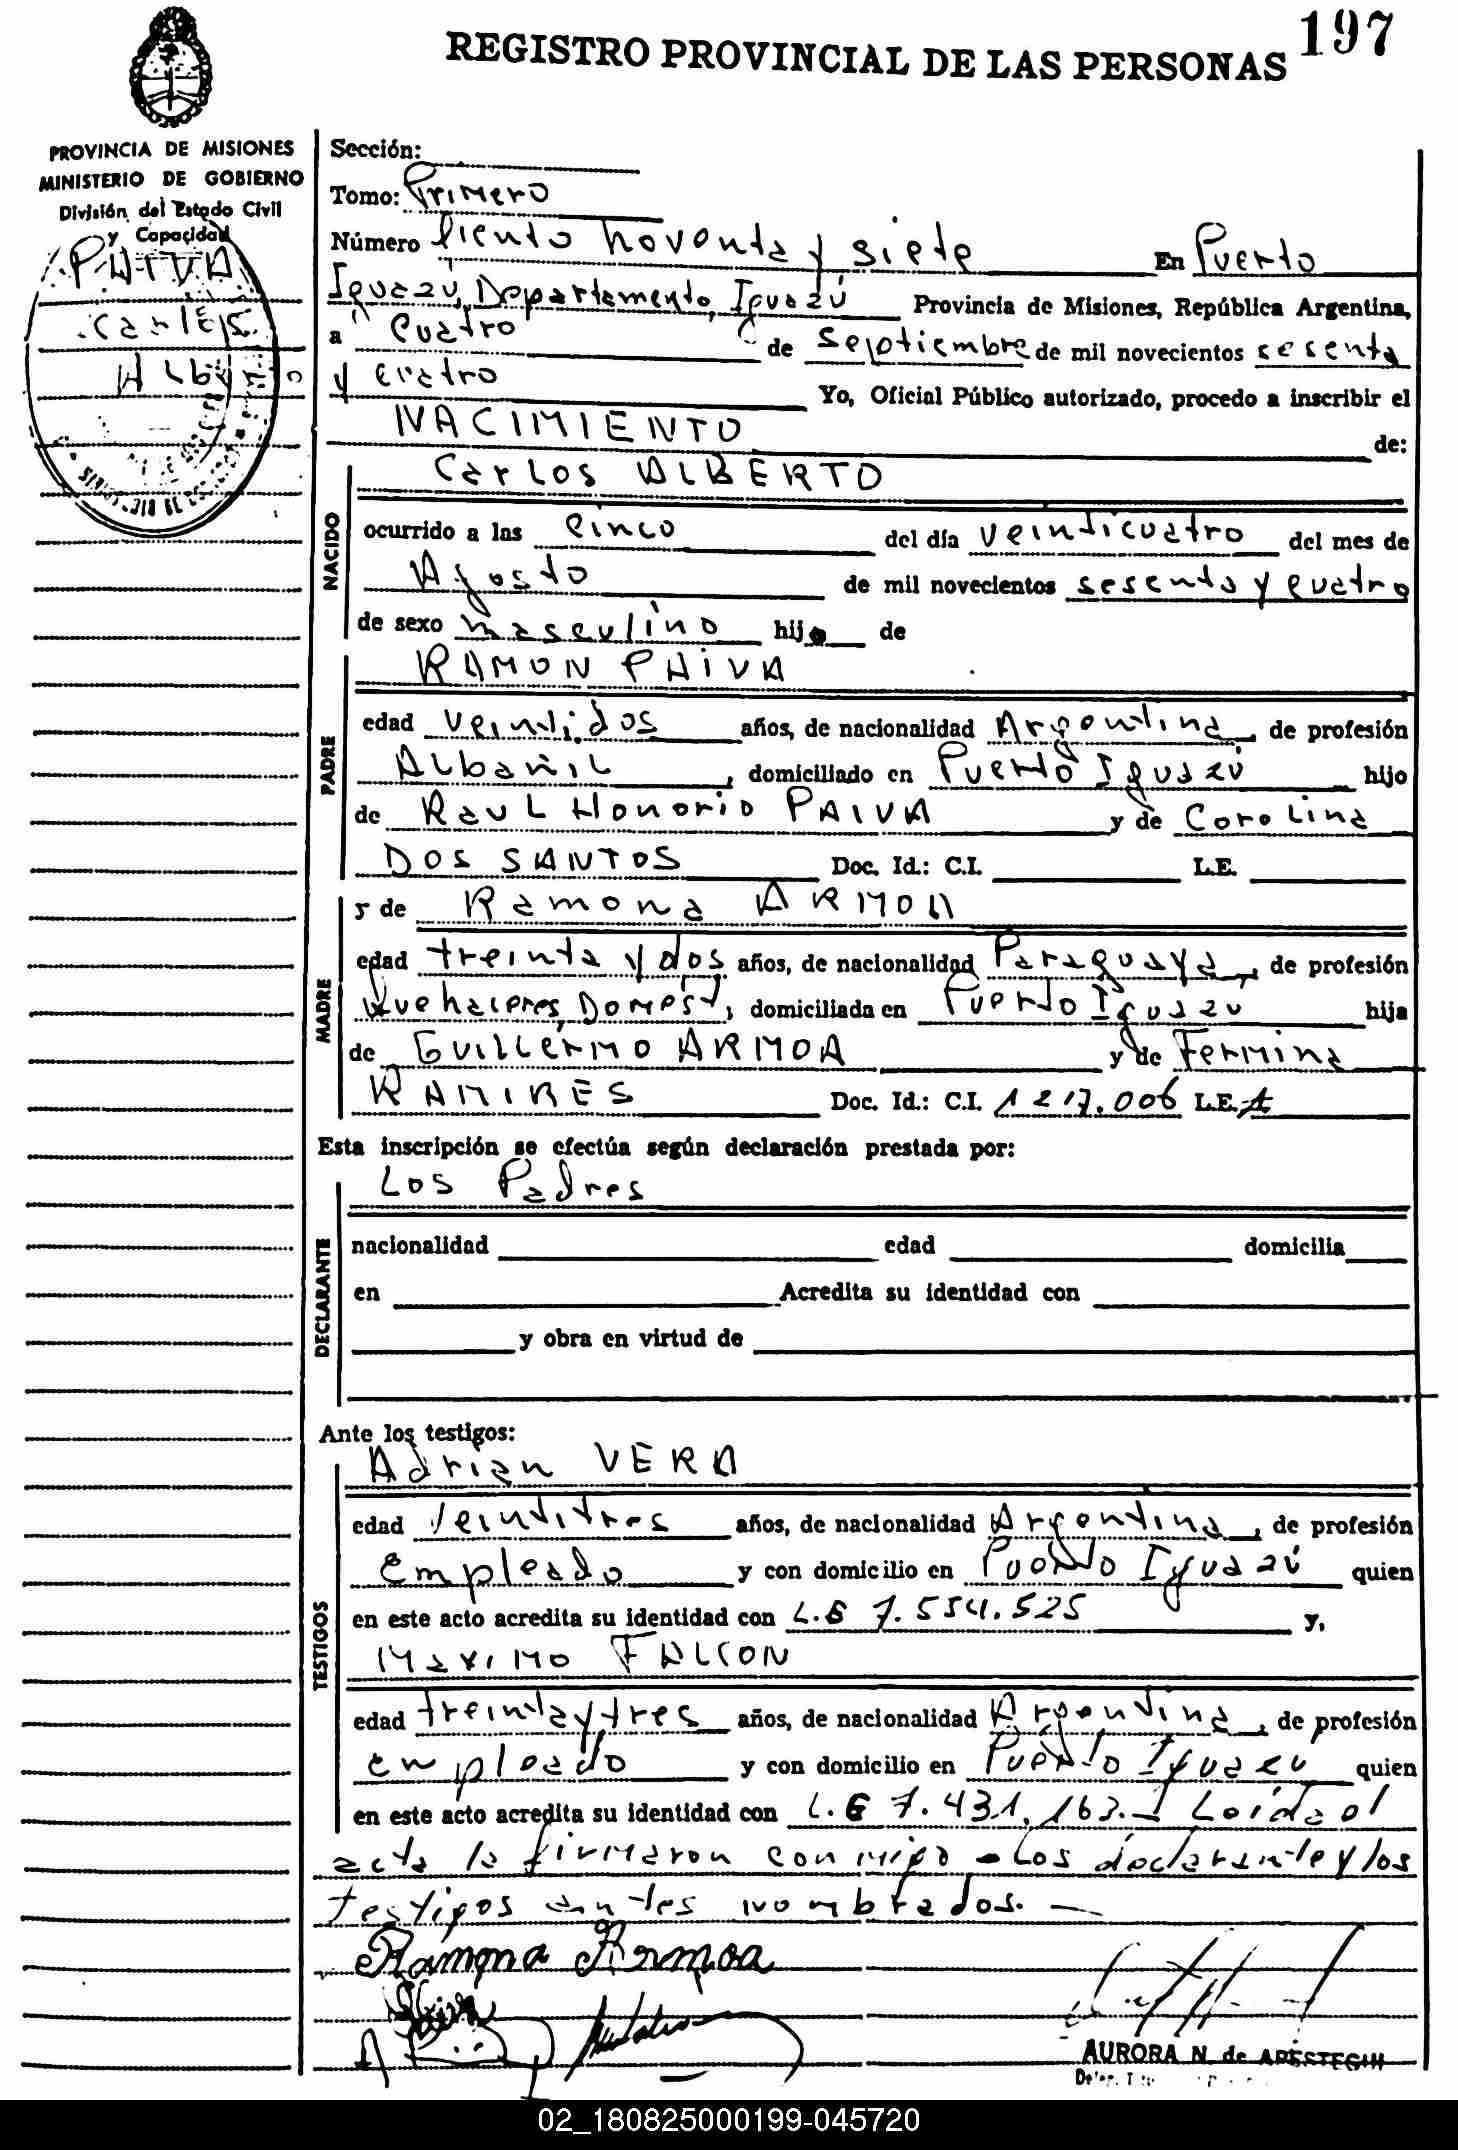 197
REGISTRO PROVINCIAL DE LAS PERSONAS
PROVINCIA DE MISIONES
MINISTERIO DE GOBIERNO
División del Estado Civil
y Capacidad
PAIVA
Carlos
Alberto
Sección:
Tomo: Primero
Número Ciento noventa y siete En Puerto
Iguazú, Departamento, Iguazú Provincia de Misiones, República Argentina,
a Cuatro de Septiembre de mil novecientos sesenta
y cuatro Yo, Oficial Público autorizado, procedo a inscribir el
NACIMIENTO de:
NACIDO
Carlos ALBERTO
ocurrido a las cinco del día veinticuatro del mes de
Agosto de mil novecientos sesenta y cuatro
de sexo masculino hijo de
PADRE
RAMON PAIVA
edad veintidos años, de nacionalidad Argentina, de profesión
Albañil, domiciliado en Puerto Iguazú hijo
de Raul Honorio PAIVA y de Carolina
DOS SANTOS Doc. Id.: C.I. L.E.
MADRE
y de Ramona ARMOA
edad treinta y dos años, de nacionalidad Paraguaya, de profesión
Quehaceres Domest, domiciliada en Puerto Iguazu hija
de Guillermo ARMOA y de Fermina
RAMIRES Doc. Id.: C.I. 1217.006 L.E.
Esta inscripción se efectúa según declaración prestada por:
DECLARANTE
Los Padres
nacionalidad edad domicilia
en Acredita su identidad con
y obra en virtud de
Ante los testigos:
TESTIGOS
Adrian VERA
edad Veintitres años, de nacionalidad Argentina, de profesión
Empleado y con domicilio en Puerto Iguazú quien
en este acto acredita su identidad con L.E 7.554.525 y,
Maximo FALCON
edad treinta y tres años, de nacionalidad Argentina, de profesión
empleado y con domicilio en Puerto Iguazu quien
en este acto acredita su identidad con L.E 7.431.163.- Loida el
acta la firmaron conmigo - Los declarante y los
testigos antes nombrados. —
Ramona Armoa
AURORA N. de ARESTEGUI
02_180825000199-045720